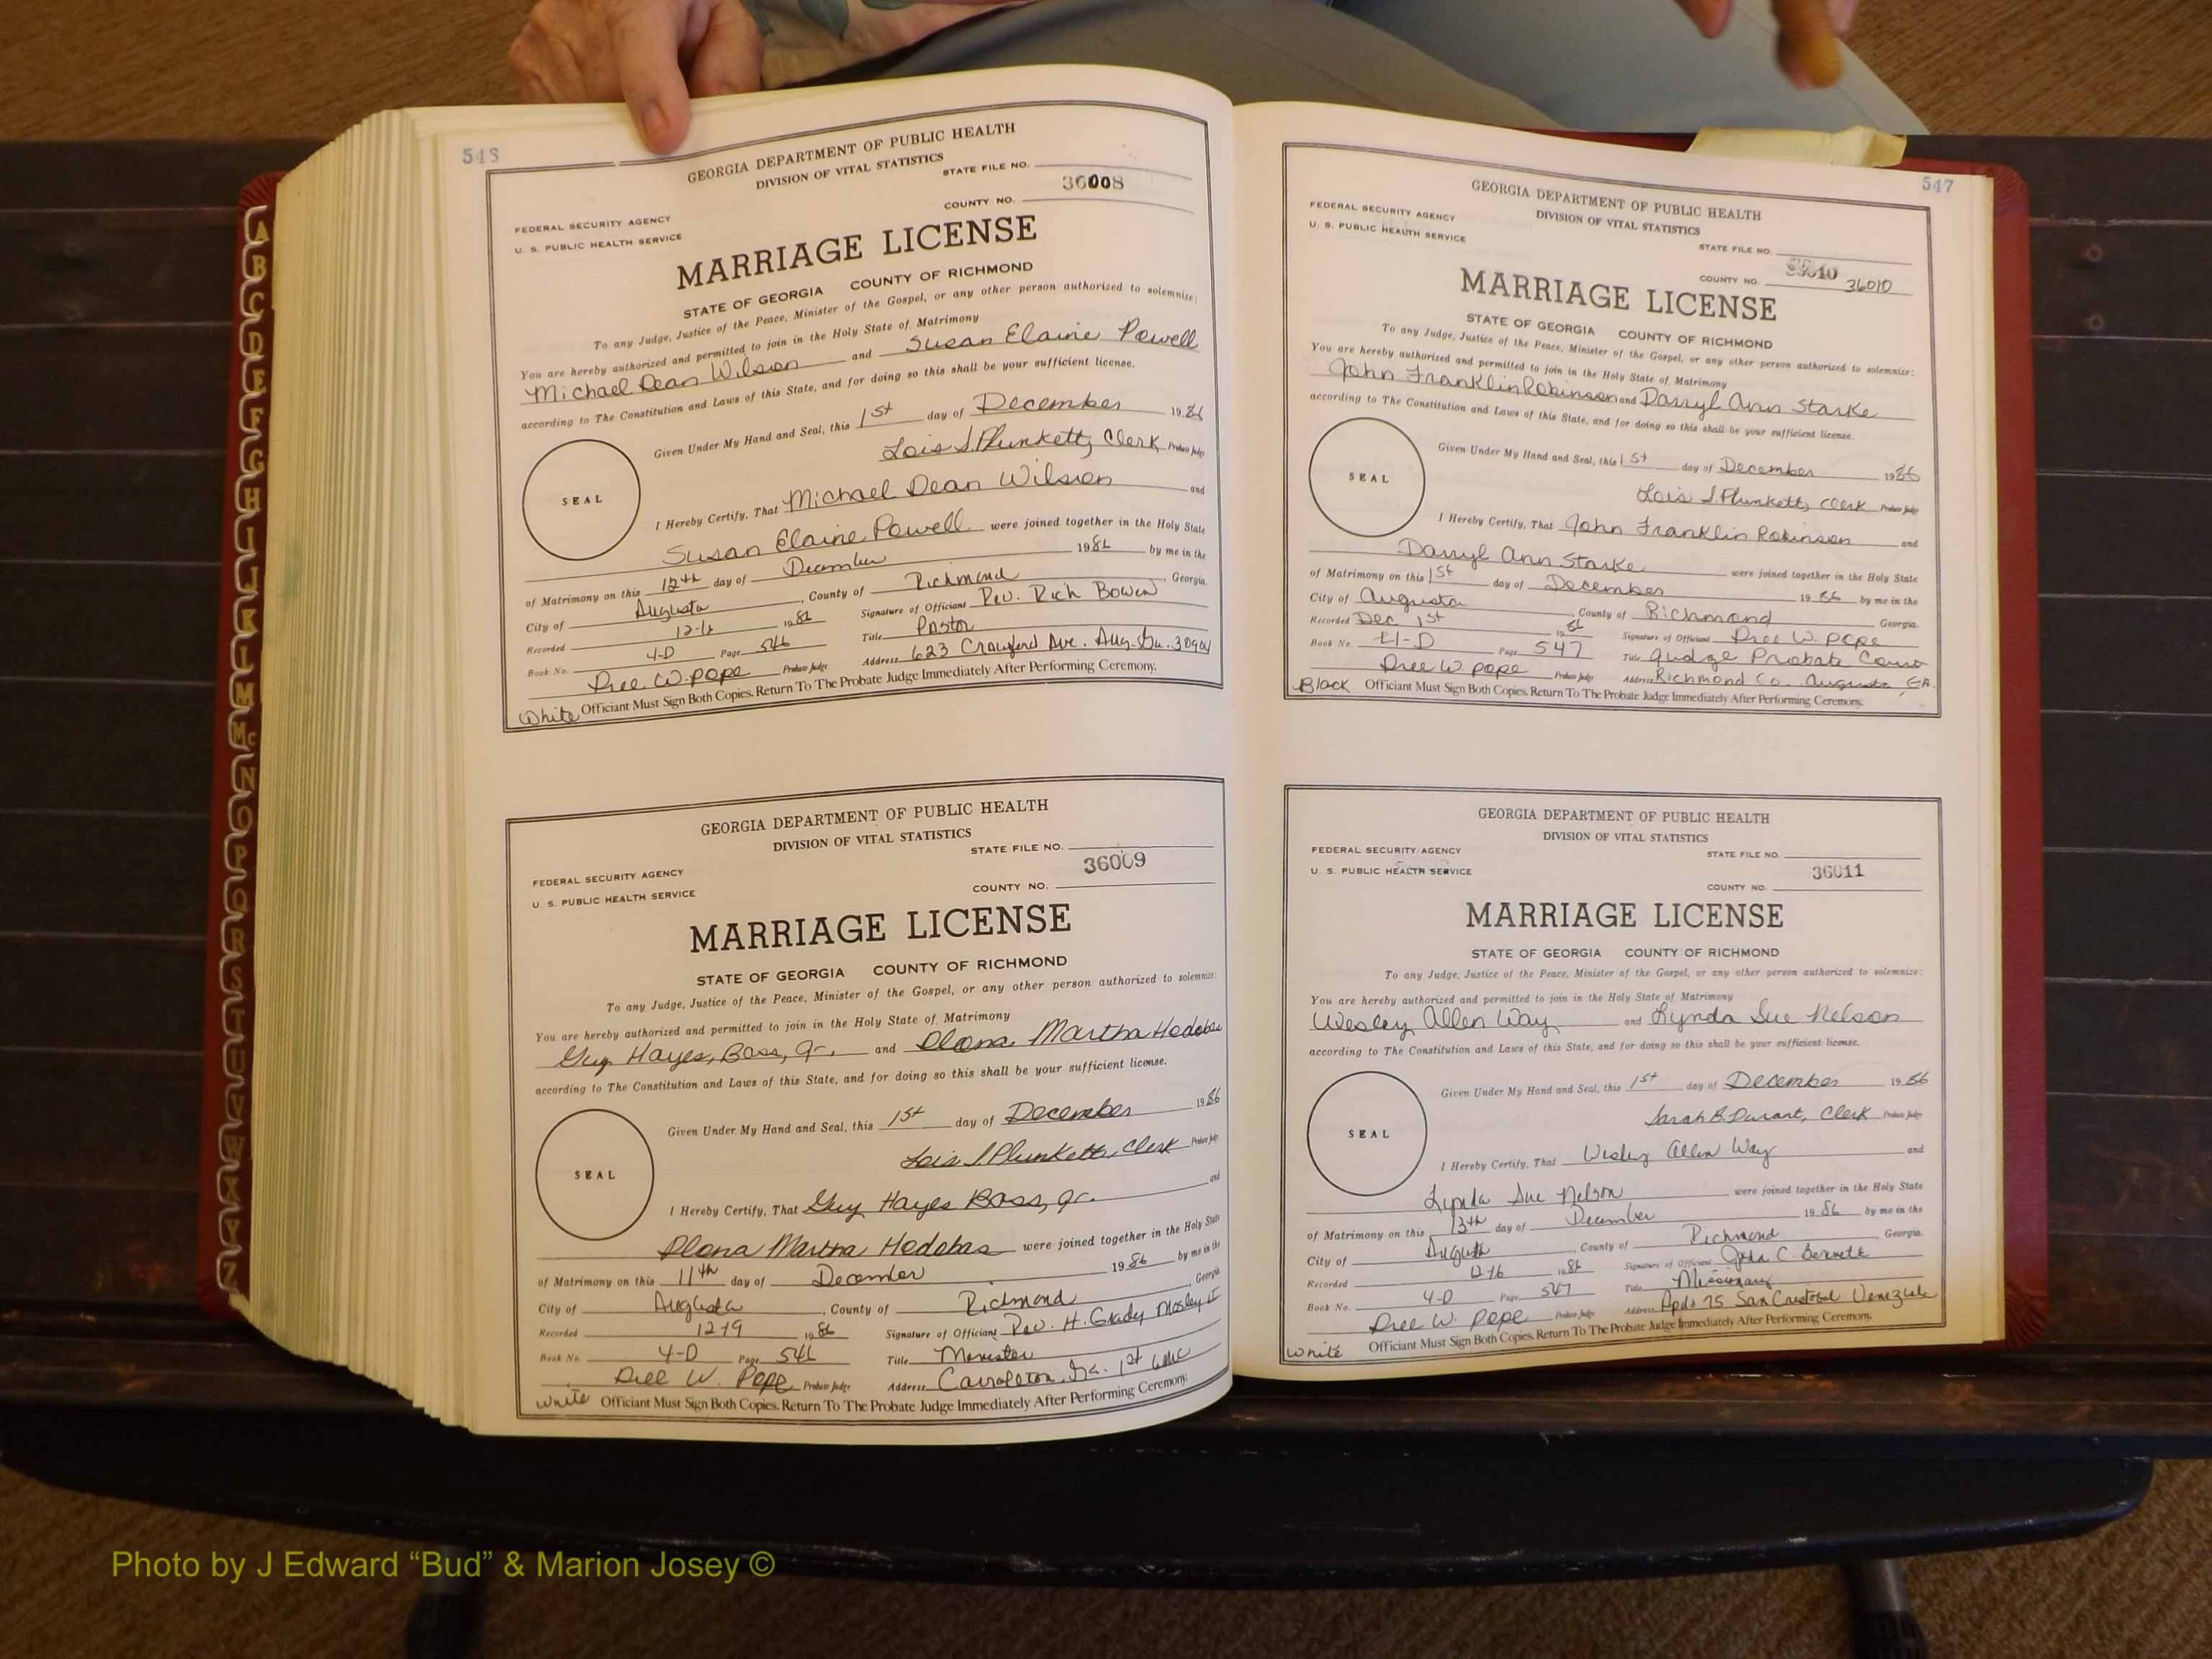 546
GEORGIA DEPARTMENT OF PUBLIC HEALTH
DIVISION OF VITAL STATISTICS
STATE FILE NO.
36008
FEDERAL SECURITY AGENCY
COUNTY NO.
U. S. PUBLIC HEALTH SERVICE
MARRIAGE LICENSE
STATE OF GEORGIA COUNTY OF RICHMOND
To any Judge, Justice of the Peace, Minister of the Gospel, or any other person authorized to solemnize:
You are hereby authorized and permitted to join in the Holy State of Matrimony
Michael Dean Wilson and Susan Elaine Powell
according to The Constitution and Laws of this State, and for doing so this shall be your sufficient license.
Given Under My Hand and Seal, this 1st day of December 1986
Lois S. Plunkett, Clerk Probate Judge
SEAL
I Hereby Certify, That Michael Dean Wilson and
Susan Elaine Powell were joined together in the Holy State
of Matrimony on this 12th day of December 1986 by me in the
City of Augusta, County of Richmond, Georgia.
Recorded 1986 Signature of Officiant Rev. Rich Bowen
Book No. 4-D Page 546 Title Pastor
Dree W. Pope Probate Judge Address 623 Crawford Ave. Aug. Ga. 30904
White Officiant Must Sign Both Copies. Return To The Probate Judge Immediately After Performing Ceremony.
GEORGIA DEPARTMENT OF PUBLIC HEALTH
DIVISION OF VITAL STATISTICS
STATE FILE NO.
36009
FEDERAL SECURITY AGENCY
COUNTY NO.
U. S. PUBLIC HEALTH SERVICE
MARRIAGE LICENSE
STATE OF GEORGIA COUNTY OF RICHMOND
To any Judge, Justice of the Peace, Minister of the Gospel, or any other person authorized to solemnize:
You are hereby authorized and permitted to join in the Holy State of Matrimony
Guy Hayes, Bass, Jr. and Martha
according to The Constitution and Laws of this State, and for doing so this shall be your sufficient license.
Given Under My Hand and Seal, this 1st day of December 1986
Lois S Plunkett, Clerk Probate Judge
SEAL
I Hereby Certify, That Guy Hayes Bass, Jr. and
Martha were joined together in the Holy State
of Matrimony on this 11th day of December 1986 by me in the
City of Augusta, County of Richmond, Georgia.
Recorded 12-19 1986 Signature of Officiant Rev. H. Grady Mosley
Book No. 4-D Page 546 Title
Dree W. Pope Probate Judge Address Ga. 1st
White Officiant Must Sign Both Copies. Return To The Probate Judge Immediately After Performing Ceremony.
547
GEORGIA DEPARTMENT OF PUBLIC HEALTH
DIVISION OF VITAL STATISTICS
FEDERAL SECURITY AGENCY
U. S. PUBLIC HEALTH SERVICE
STATE FILE NO.
COUNTY NO. 36010
MARRIAGE LICENSE
STATE OF GEORGIA COUNTY OF RICHMOND
To any Judge, Justice of the Peace, Minister of the Gospel, or any other person authorized to solemnize:
You are hereby authorized and permitted to join in the Holy State of Matrimony
John Franklin Robinson and Darryl Ann Starke
according to The Constitution and Laws of this State, and for doing so this shall be your sufficient license.
Given Under My Hand and Seal, this 1st day of December 1986
Lois S. Plunkett, Clerk Probate Judge
SEAL
I Hereby Certify, That John Franklin Robinson and
Darryl Ann Starke were joined together in the Holy State
of Matrimony on this 1st day of December 1986 by me in the
City of Augusta, County of Richmond Georgia.
Recorded Dec. 1st 1986 Signature of Officiant Dree W. Pope
Book No. Page 547 Title Judge Probate Court
Dree W. Pope Probate Judge Address Richmond Co. Augusta, GA.
Black Officiant Must Sign Both Copies. Return To The Probate Judge Immediately After Performing Ceremony.
GEORGIA DEPARTMENT OF PUBLIC HEALTH
DIVISION OF VITAL STATISTICS
FEDERAL SECURITY AGENCY
STATE FILE NO.
U. S. PUBLIC HEALTH SERVICE
36011
COUNTY NO.
MARRIAGE LICENSE
STATE OF GEORGIA COUNTY OF RICHMOND
To any Judge, Justice of the Peace, Minister of the Gospel, or any other person authorized to solemnize:
You are hereby authorized and permitted to join in the Holy State of Matrimony
Wesley Allen Way and Lynda Sue Nelson
according to The Constitution and Laws of this State, and for doing so this shall be your sufficient license.
Given Under My Hand and Seal, this 1st day of December 1986
Sarah B. Durant, Clerk Probate Judge
SEAL
I Hereby Certify, That Wesley Allen Way and
Lynda Sue Nelson were joined together in the Holy State
of Matrimony on this 13th day of December 1986 by me in the
City of Augusta, County of Richmond Georgia.
Recorded 12-16 1986 Signature of Officiant John C.
Book No. 4-D Page 547 Title Missionary
Dree W. Pope Probate Judge Address Apdo 75 San Cristobal Venezuela
White Officiant Must Sign Both Copies. Return To The Probate Judge Immediately After Performing Ceremony.
A
B
C
D
E
F
G
H
I
J
K
L
M
Mc
N
O
P
Q
R
S
T
U
V
W
X
Y
Z
Photo by J Edward “Bud” & Marion Josey ©